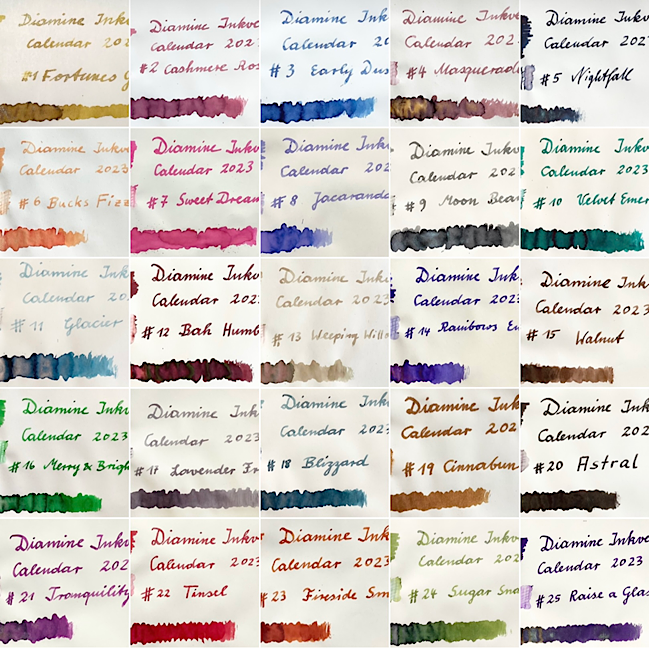 Diamine Inkv
Calendar 202
#1 Fortunes G
Diamine Inkv
Calendar 202
#2 Cashmere Ros
Diamine Inkv
Calendar 20
#3 Early Dus
Diamine Inkv
Calendar 202
#4 Masquerade
Diamine Inkv
Calendar 202
#5 Nightfall
Diamine Inkv
Calendar 2023
#6 Bucks Fizz
Diamine Inkv
Calendar 2023
#7 Sweet Dream
Diamine Inkv
Calendar 202
#8 Jacaranda
Diamine Inkv
Calendar 202
#9 Moon Bea
Diamine Inkv
Calendar 2023
#10 Velvet Emer
Diamine Ink
Calendar 20
#11 Glacier
Diamine Inkv
Calendar 202
#12 Bah Humb
Diamine Inkv
Calendar 2023
#13 Weeping Willo
Diamine Inkv
Calendar 202
#14 Rainbows En
Diamine Inkv
Calendar 2023
#15 Walnut
Diamine Inkv
Calendar 2023
#16 Merry & Brigh
Diamine Ink
Calendar 2023
#17 Lavender Fr
Diamine Inkv
Calendar 2023
#18 Blizzard
Diamine Ink
Calendar 202
#19 Cinnabun
Diamine Inkv
Calendar 2023
#20 Astral
Diamine Inkv
Calendar 202
#21 Tranquility
Diamine Inkv
Calendar 2023
#22 Tinsel
Diamine Ink
Calendar 2023
#23 Fireside Sn
Diamine Inkv
Calendar 202
#24 Sugar Sna
Diamine Inkve
Calendar 2023
#25 Raise a Glas